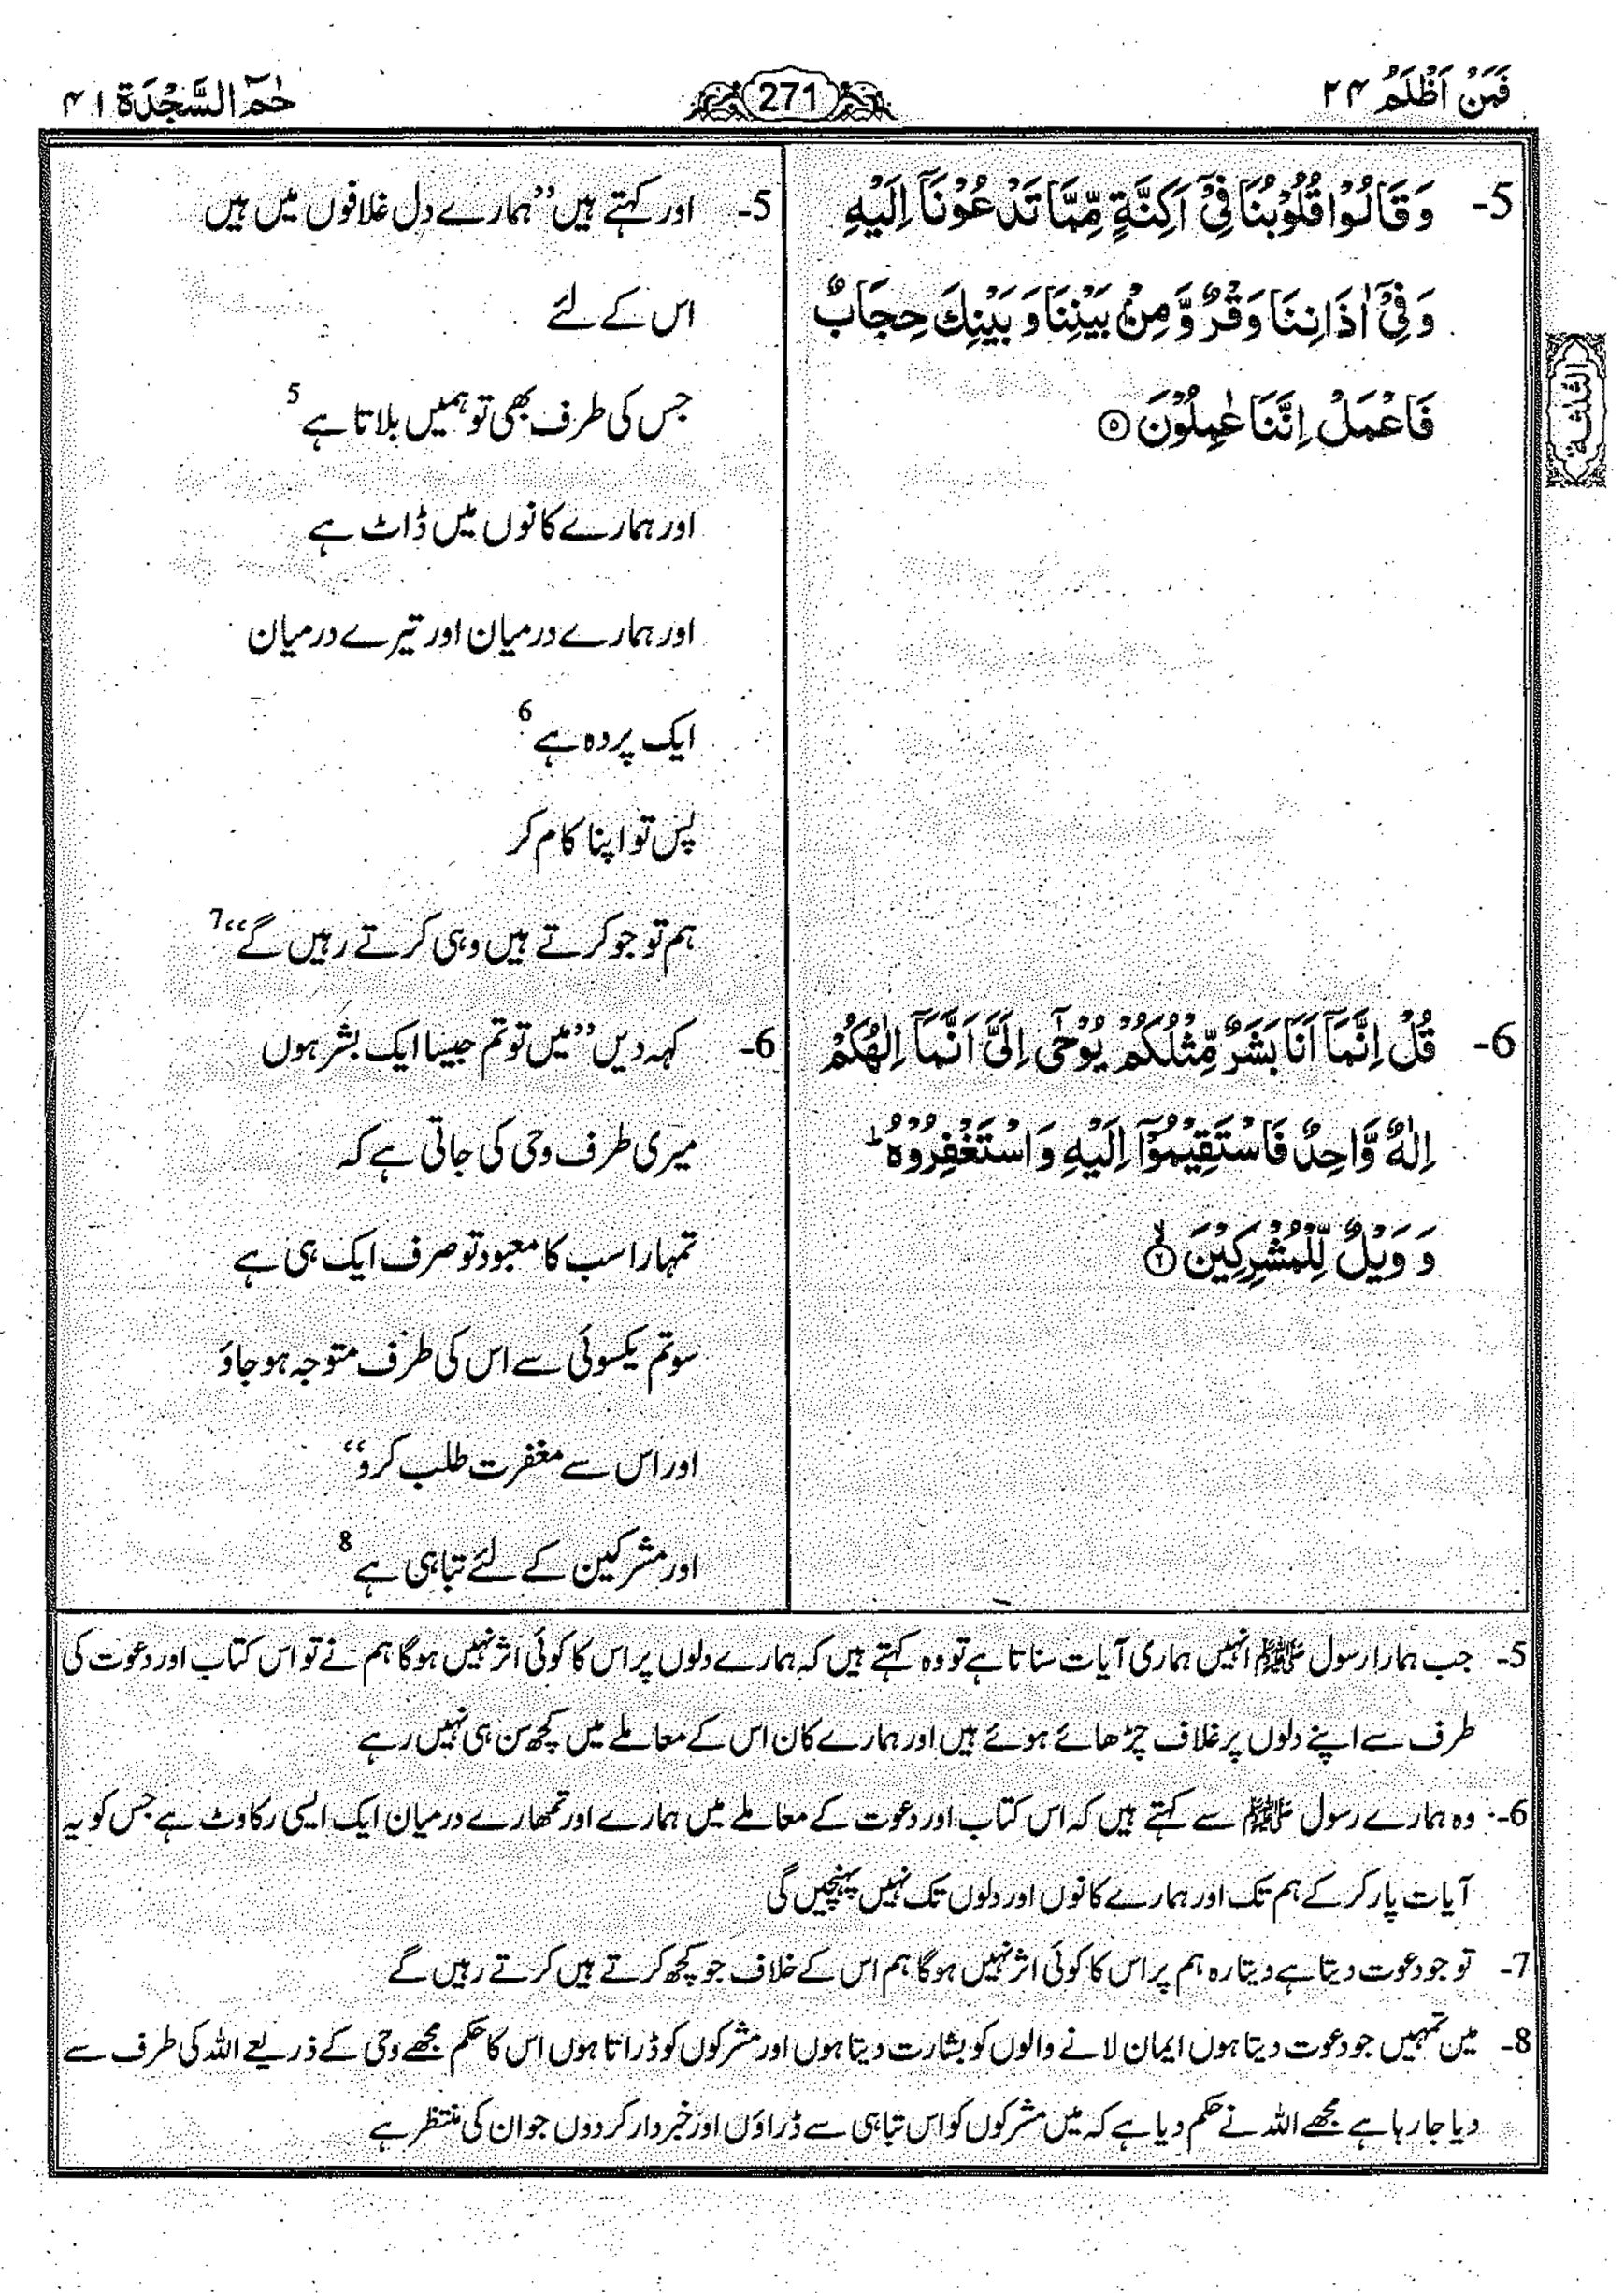 فَمَنْ اَظْلَمُ ۲۴
271
حٰمٓ السَّجْدَة ۴۱
الثلثة
5- وَقَالُوْا قُلُوْبُنَا فِیْۤ اَكِنَّةٍ مِّمَّا تَدْعُوْنَاۤ اِلَیْهِ
وَفِیْۤ اٰذَانِنَا وَقْرٌ وَّمِنْۢ بَیْنِنَا وَبَیْنِكَ حِجَابٌ
فَاعْمَلْ اِنَّنَا عٰمِلُوْنَ ۵
5- اور کہتے ہیں ”ہمارے دل غلافوں میں ہیں
اس کے لئے
جس کی طرف بھی تو ہمیں بلاتا ہے 5
اور ہمارے کانوں میں ڈاٹ ہے
اور ہمارے درمیان اور تیرے درمیان
ایک پردہ ہے 6
پس تو اپنا کام کر
ہم تو جو کرتے ہیں وہی کرتے رہیں گے“ 7
6- قُلْ اِنَّمَاۤ اَنَا بَشَرٌ مِّثْلُكُمْ یُوْحٰۤی اِلَیَّ اَنَّمَاۤ اِلٰهُكُمْ
اِلٰهٌ وَّاحِدٌ فَاسْتَقِیْمُوْۤا اِلَیْهِ وَاسْتَغْفِرُوْهُ ؕ
وَ وَیْلٌ لِّلْمُشْرِكِیْنَ ۙ ۶
6- کہہ دیں ”میں تو تم جیسا ایک بشر ہوں
میری طرف وحی کی جاتی ہے کہ
تمہارا سب کا معبود تو صرف ایک ہی ہے
سو تم یکسوئی سے اس کی طرف متوجہ ہو جاؤ
اور اس سے مغفرت طلب کرو“
اور مشرکین کے لئے تباہی ہے 8
5- جب ہمارا رسول ﷺ انہیں ہماری آیات سناتا ہے تو وہ کہتے ہیں کہ ہمارے دلوں پر اس کا کوئی اثر نہیں ہوگا ہم نے تو اس کتاب اور دعوت کی
طرف سے اپنے دلوں پر غلاف چڑھائے ہوئے ہیں اور ہمارے کان اس کے معاملے میں کچھ سن ہی نہیں رہے
6- وہ ہمارے رسول ﷺ سے کہتے ہیں کہ اس کتاب اور دعوت کے معاملے میں ہمارے اور تمھارے درمیان ایک ایسی رکاوٹ ہے جس کو یہ
آیات پار کر کے ہم تک اور ہمارے کانوں اور دلوں تک نہیں پہنچیں گی
7- تو جو دعوت دیتا ہے دیتا رہ ہم پر اس کا کوئی اثر نہیں ہوگا ہم اس کے خلاف جو کچھ کرتے ہیں کرتے رہیں گے
8- میں تمہیں جو دعوت دیتا ہوں ایمان لانے والوں کو بشارت دیتا ہوں اور مشرکوں کو ڈراتا ہوں اس کا حکم مجھے وحی کے ذریعے اللہ کی طرف سے
دیا جا رہا ہے مجھے اللہ نے حکم دیا ہے کہ میں مشرکوں کو اس تباہی سے ڈراؤں اور خبردار کر دوں جو ان کی منتظر ہے